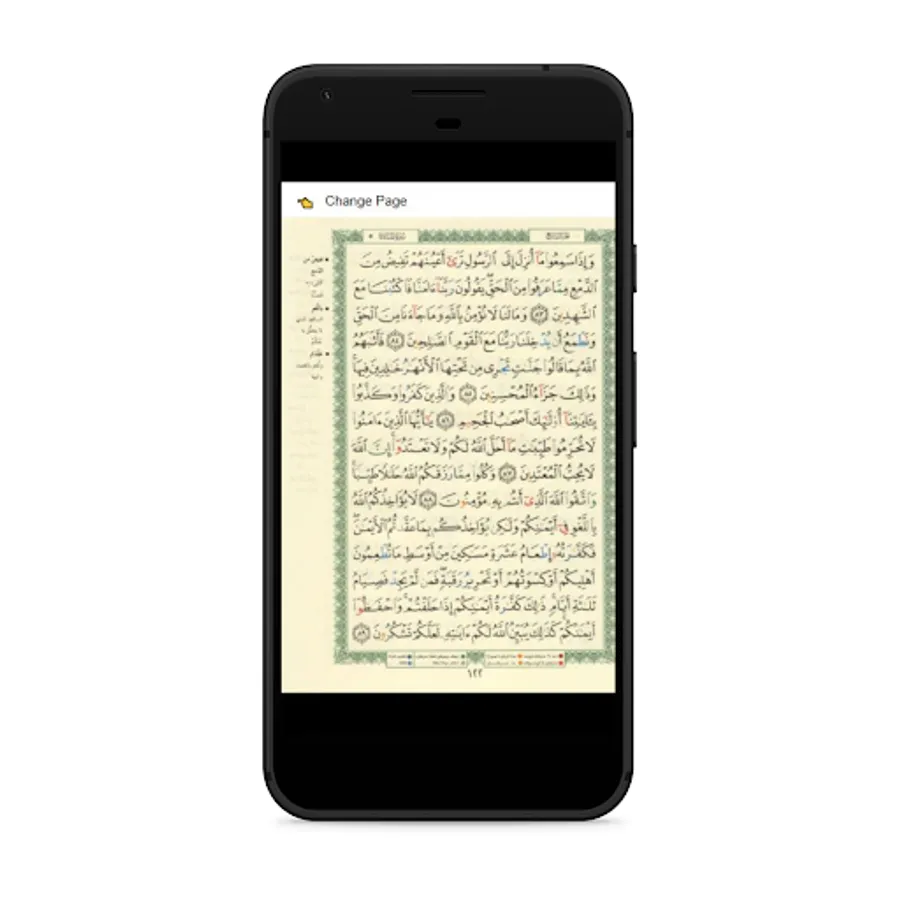 Change Page
وَإِذَا سَمِعُوا۟ مَآ أُنزِلَ إِلَى ٱلرَّسُولِ تَرَىٰٓ أَعْيُنَهُمْ تَفِيضُ مِنَ
ٱلدَّمْعِ مِمَّا عَرَفُوا۟ مِنَ ٱلْحَقِّ ۖ يَقُولُونَ رَبَّنَآ ءَامَنَّا فَٱكْتُبْنَا مَعَ
ٱلشَّٰهِدِينَ ٨٣ وَمَا لَنَا لَا نُؤْمِنُ بِٱللَّهِ وَمَا جَآءَنَا مِنَ ٱلْحَقِّ
وَنَطْمَعُ أَن يُدْخِلَنَا رَبُّنَا مَعَ ٱلْقَوْمِ ٱلصَّٰلِحِينَ ٨٤ فَأَثَٰبَهُمُ
ٱللَّهُ بِمَا قَالُوا۟ جَنَّٰتٍ تَجْرِى مِن تَحْتِهَا ٱلْأَنْهَٰرُ خَٰلِدِينَ فِيهَا ۚ
وَذَٰلِكَ جَزَآءُ ٱلْمُحْسِنِينَ ٨٥ وَٱلَّذِينَ كَفَرُوا۟ وَكَذَّبُوا۟
بِـَٔايَٰتِنَآ أُو۟لَٰٓئِكَ أَصْحَٰبُ ٱلْجَحِيمِ ٨٦ يَٰٓأَيُّهَا ٱلَّذِينَ ءَامَنُوا۟
لَا تُحَرِّمُوا۟ طَيِّبَٰتِ مَآ أَحَلَّ ٱللَّهُ لَكُمْ وَلَا تَعْتَدُوٓا۟ ۚ إِنَّ ٱللَّهَ
لَا يُحِبُّ ٱلْمُعْتَدِينَ ٨٧ وَكُلُوا۟ مِمَّا رَزَقَكُمُ ٱللَّهُ حَلَٰلًا طَيِّبًا ۚ
وَٱتَّقُوا۟ ٱللَّهَ ٱلَّذِىٓ أَنتُم بِهِۦ مُؤْمِنُونَ ٨٨ لَا يُؤَاخِذُكُمُ ٱللَّهُ
بِٱللَّغْوِ فِىٓ أَيْمَٰنِكُمْ وَلَٰكِن يُؤَاخِذُكُم بِمَا عَقَّدتُّمُ ٱلْأَيْمَٰنَ ۖ
فَكَفَّٰرَتُهُۥٓ إِطْعَامُ عَشَرَةِ مَسَٰكِينَ مِنْ أَوْسَطِ مَا تُطْعِمُونَ
أَهْلِيكُمْ أَوْ كِسْوَتُهُمْ أَوْ تَحْرِيرُ رَقَبَةٍ ۖ فَمَن لَّمْ يَجِدْ فَصِيَامُ
ثَلَٰثَةِ أَيَّامٍ ۚ ذَٰلِكَ كَفَّٰرَةُ أَيْمَٰنِكُمْ إِذَا حَلَفْتُمْ ۚ وَٱحْفَظُوٓا۟
أَيْمَٰنَكُمْ ۚ كَذَٰلِكَ يُبَيِّنُ ٱللَّهُ لَكُمْ ءَايَٰتِهِۦ لَعَلَّكُمْ تَشْكُرُونَ ٨٩
١٢٢